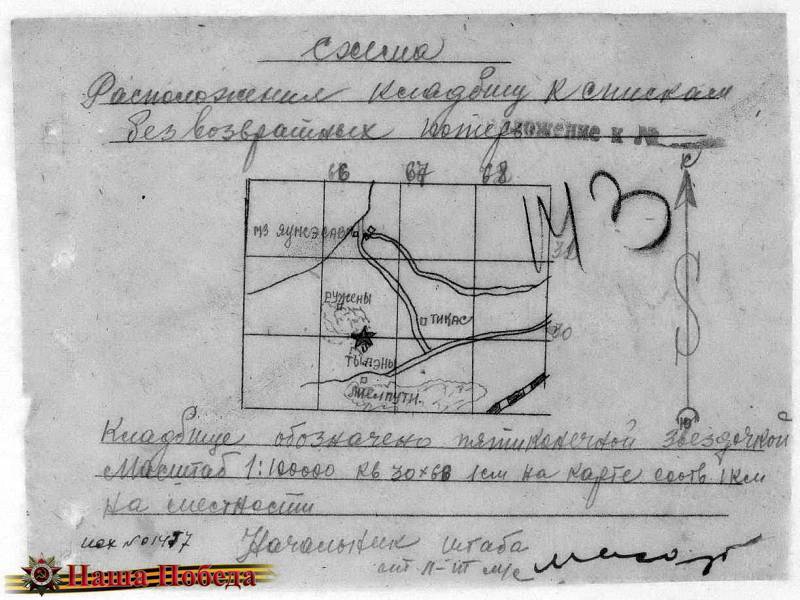 Схема
Расположения кладбищу к спискам
безвозвратных потерь ложение к №
66 67 68
М 3
МЗ ЯУНСЭСАВА
31
РУЖЕНЫ
ТИКАС
30
ТЫЛЭНЫ
ЛИЕЛПУТИ.
Ю
Кладбище обозначено пятиконечной звездочкой
Масштаб 1:100000 кв 30×66 1см на карте соотв. 1км
на местности
исх №01457
Начальник штаба
Наша Победа